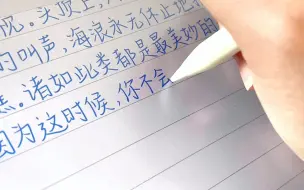 忱。头顶上，
的叫声，海浪永无休止地
羔。诸如此类都是最美妙的
因为这时候，你不会